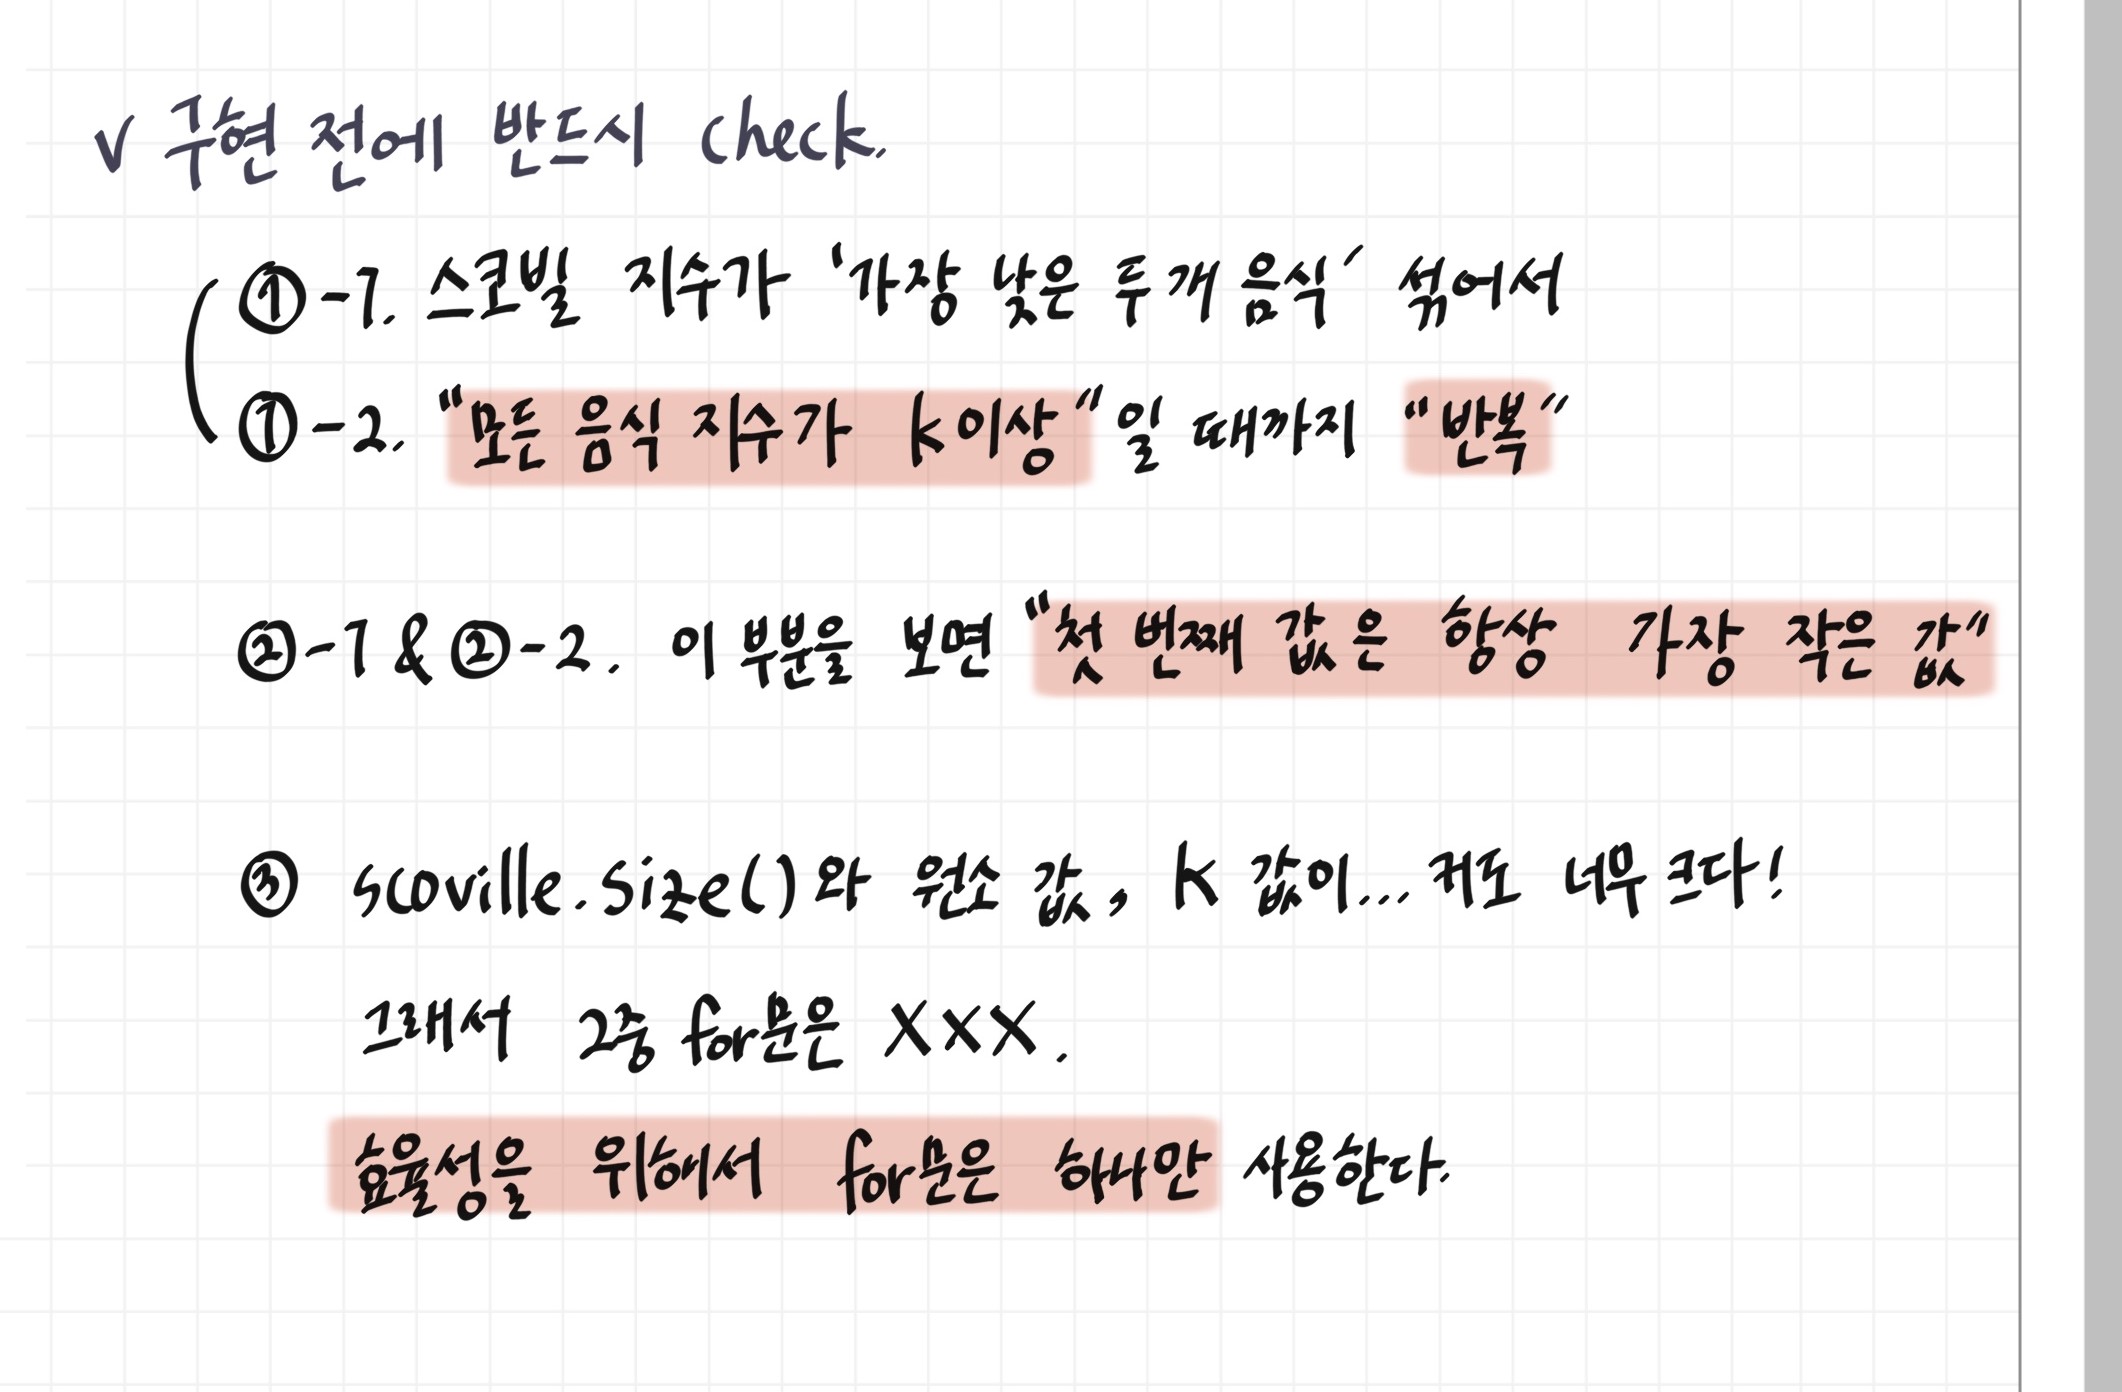 v 구현 전에 반드시 check.
①-1. 스코빌 지수가 '가장 낮은 두개 음식' 섞어서
①-2. "모든 음식 지수가 k이상"일 때까지 "반복"
②-1 & ②-2. 이 부분을 보면 "첫 번째 값은 항상 가장 작은 값"
③ scoville.size()와 원소 값, k 값이... 커도 너무 크다!
그래서 2중 for문은 XXX.
효율성을 위해서 for문은 하나만 사용한다.